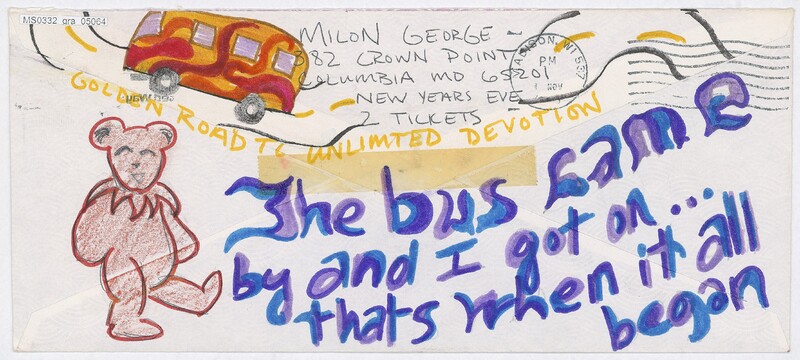 MS0332_gra_05064
MILON GEORGE
382 CROWN POINT
COLUMBIA MO 65201
NEW YEARS EVE
2 TICKETS
MADISON, WI 537
PM
NOV
GOLDEN ROAD TO UNLIMTED DEVOTION
The bus came
by and I got on...
thats when it all
began